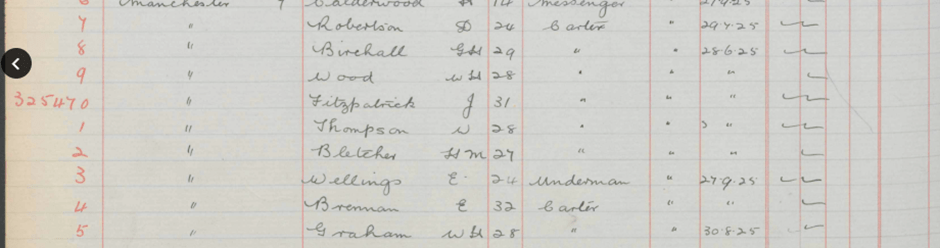 6 Manchester 7 Calderwood H 14 Messenger " 27.9.25
7 " Robertson D 24 Carter " 29.7.25
8 " Birchall GH 29 " " 28.6.25
9 " Wood WH 28 " " "
325470 " Fitzpatrick J 31 " " "
1 " Thompson W 28 " " "
2 " Bletcher HM 27 " " "
3 " Wellings E. 24 Underman " 27.9.25
4 " Brennan E 32 Carter " "
5 " Graham WH 28 " " 30.8.25